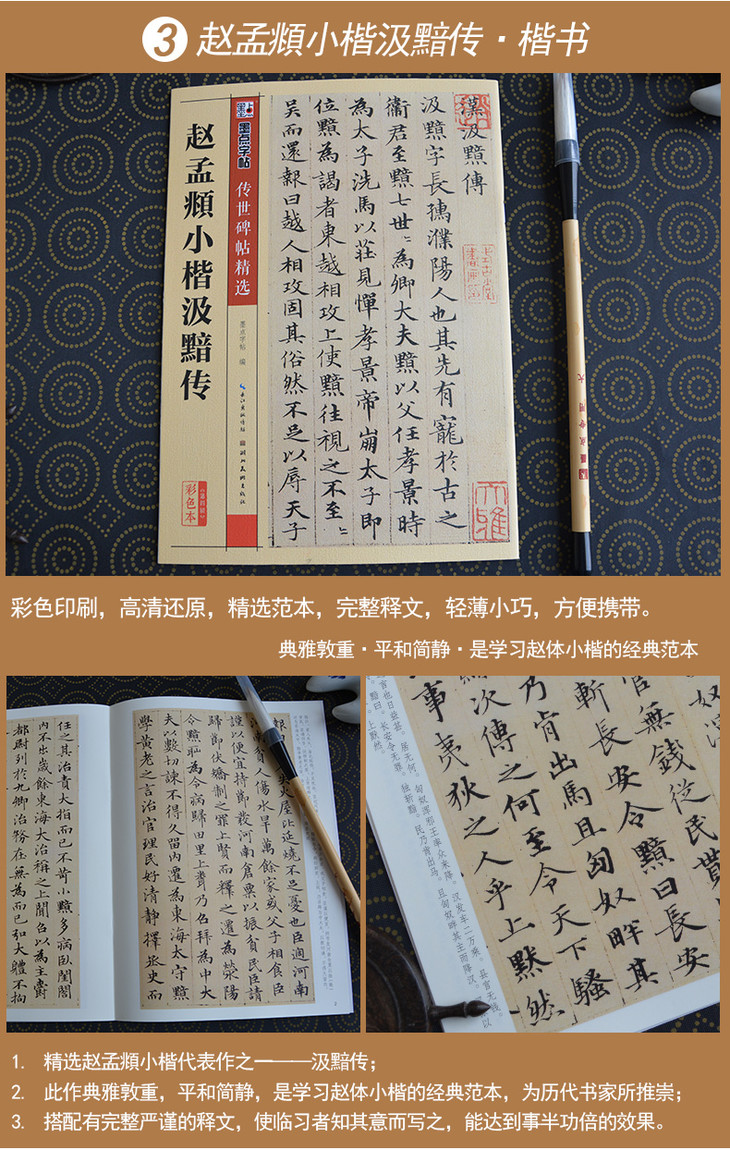 3 赵孟頫小楷汲黯传·楷书
墨点字帖
传世碑帖精选
赵孟頫小楷汲黯传
墨点字帖 编
彩色本
漢汲黯傳
汲黯字長孺濮陽人也其先有寵於古之
衛君至黯七世世為卿大夫黯以父任孝景時
為太子洗馬以莊見憚孝景帝崩太子即
位黯為謁者東越相攻上使黯往視之不至至
吳而還報曰越人相攻固其俗然不足以辱天子
彩色印刷，高清还原，精选范本，完整释文，轻薄小巧，方便携带。
典雅敦重·平和简静·是学习赵体小楷的经典范本
火屋比延燒不足憂也臣過河南
貧人傷水旱萬餘家或父子相食臣
謹以便宜持節發河南倉粟以振貧民臣請
歸節伏矯制之罪上賢而釋之遷為滎陽
令黯恥為令病歸田里上聞乃召拜為中大
夫以數切諫不得久留內遷為東海太守黯
學黃老之言治官理民好清靜擇丞史而
任之其治責大指而已不苛小黯多病臥閨閤
內不出歲餘東海大治稱之上聞召以為主爵
都尉列於九卿治務在無為而已弘大體不拘
官無錢從民貰
斬長安令黯曰長安
乃肯出馬且匈奴畔其
次傳之何至令天下騷
事夷狄之人乎上默然
1. 精选赵孟頫小楷代表作之一——汲黯传；
2. 此作典雅敦重，平和简静，是学习赵体小楷的经典范本，为历代书家所推崇；
3. 搭配有完整严谨的释文，使临习者知其意而写之，能达到事半功倍的效果。